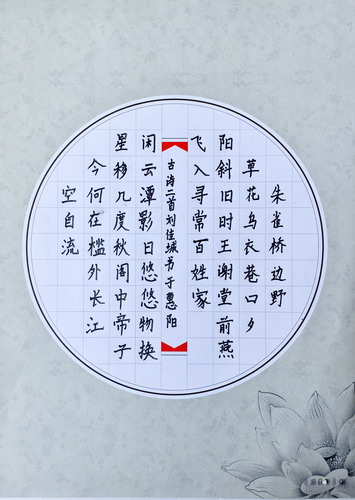 朱雀桥边野
草花乌衣巷口夕
阳斜旧时王谢堂前燕
飞入寻常百姓家
古诗二首刘佳城书于惠阳
闲云潭影日悠悠物换
星移几度秋阁中帝子
今何在槛外长江
空自流